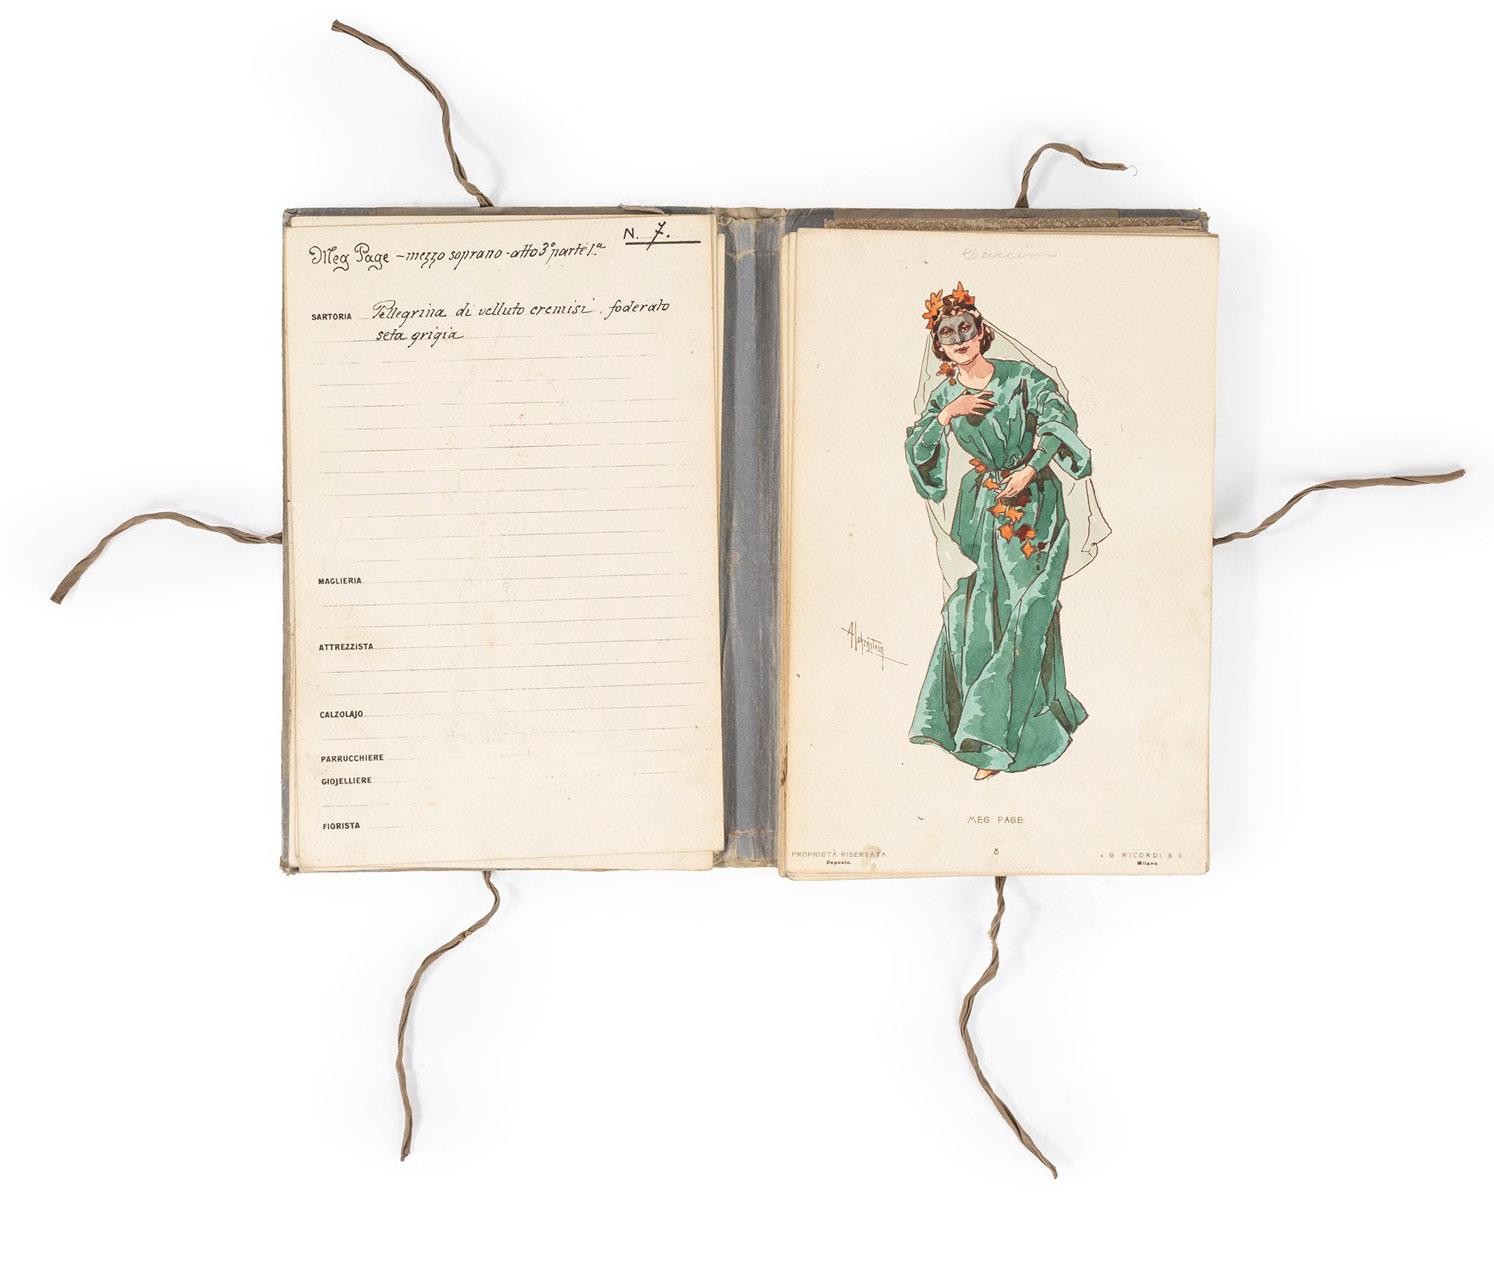 N. 7.
Meg Page - mezzo soprano - atto 3° parte 1.a
SARTORIA Pellegrina di velluto cremisi, foderato
seta grigia
MAGLIERIA
ATTREZZISTA
CALZOLAJO
PARRUCCHIERE
GIOJELLIERE
FIORISTA
AHohenstein
MEG PAGE
PROPRIETÀ RISERVATA
Deposto.
8
G. RICORDI & C.
Milano